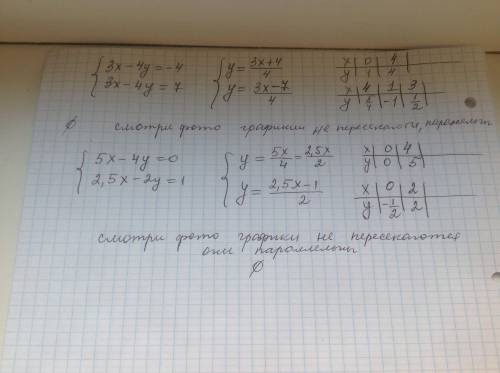 { 3x-4y=-4 { y=3x+4/4 x | 0 | 4 |
3x-4y=7 y=3x-7/4 y | 1 | 4 |
x | 4 | 1 | 3
y | 5/4 | -1 | 1/2 |
∅ смотри фото графики не пересекаются, параллельны
{ 5x-4y=0 { y=5x/4=2,5x/2 x | 0 | 4 |
2,5x-2y=1 y=2,5x-1/2 y | 0 | 5 |
x | 0 | 2 |
y | -1/2 | 2 |
смотри фото графики не пересекаются
они параллельны
∅